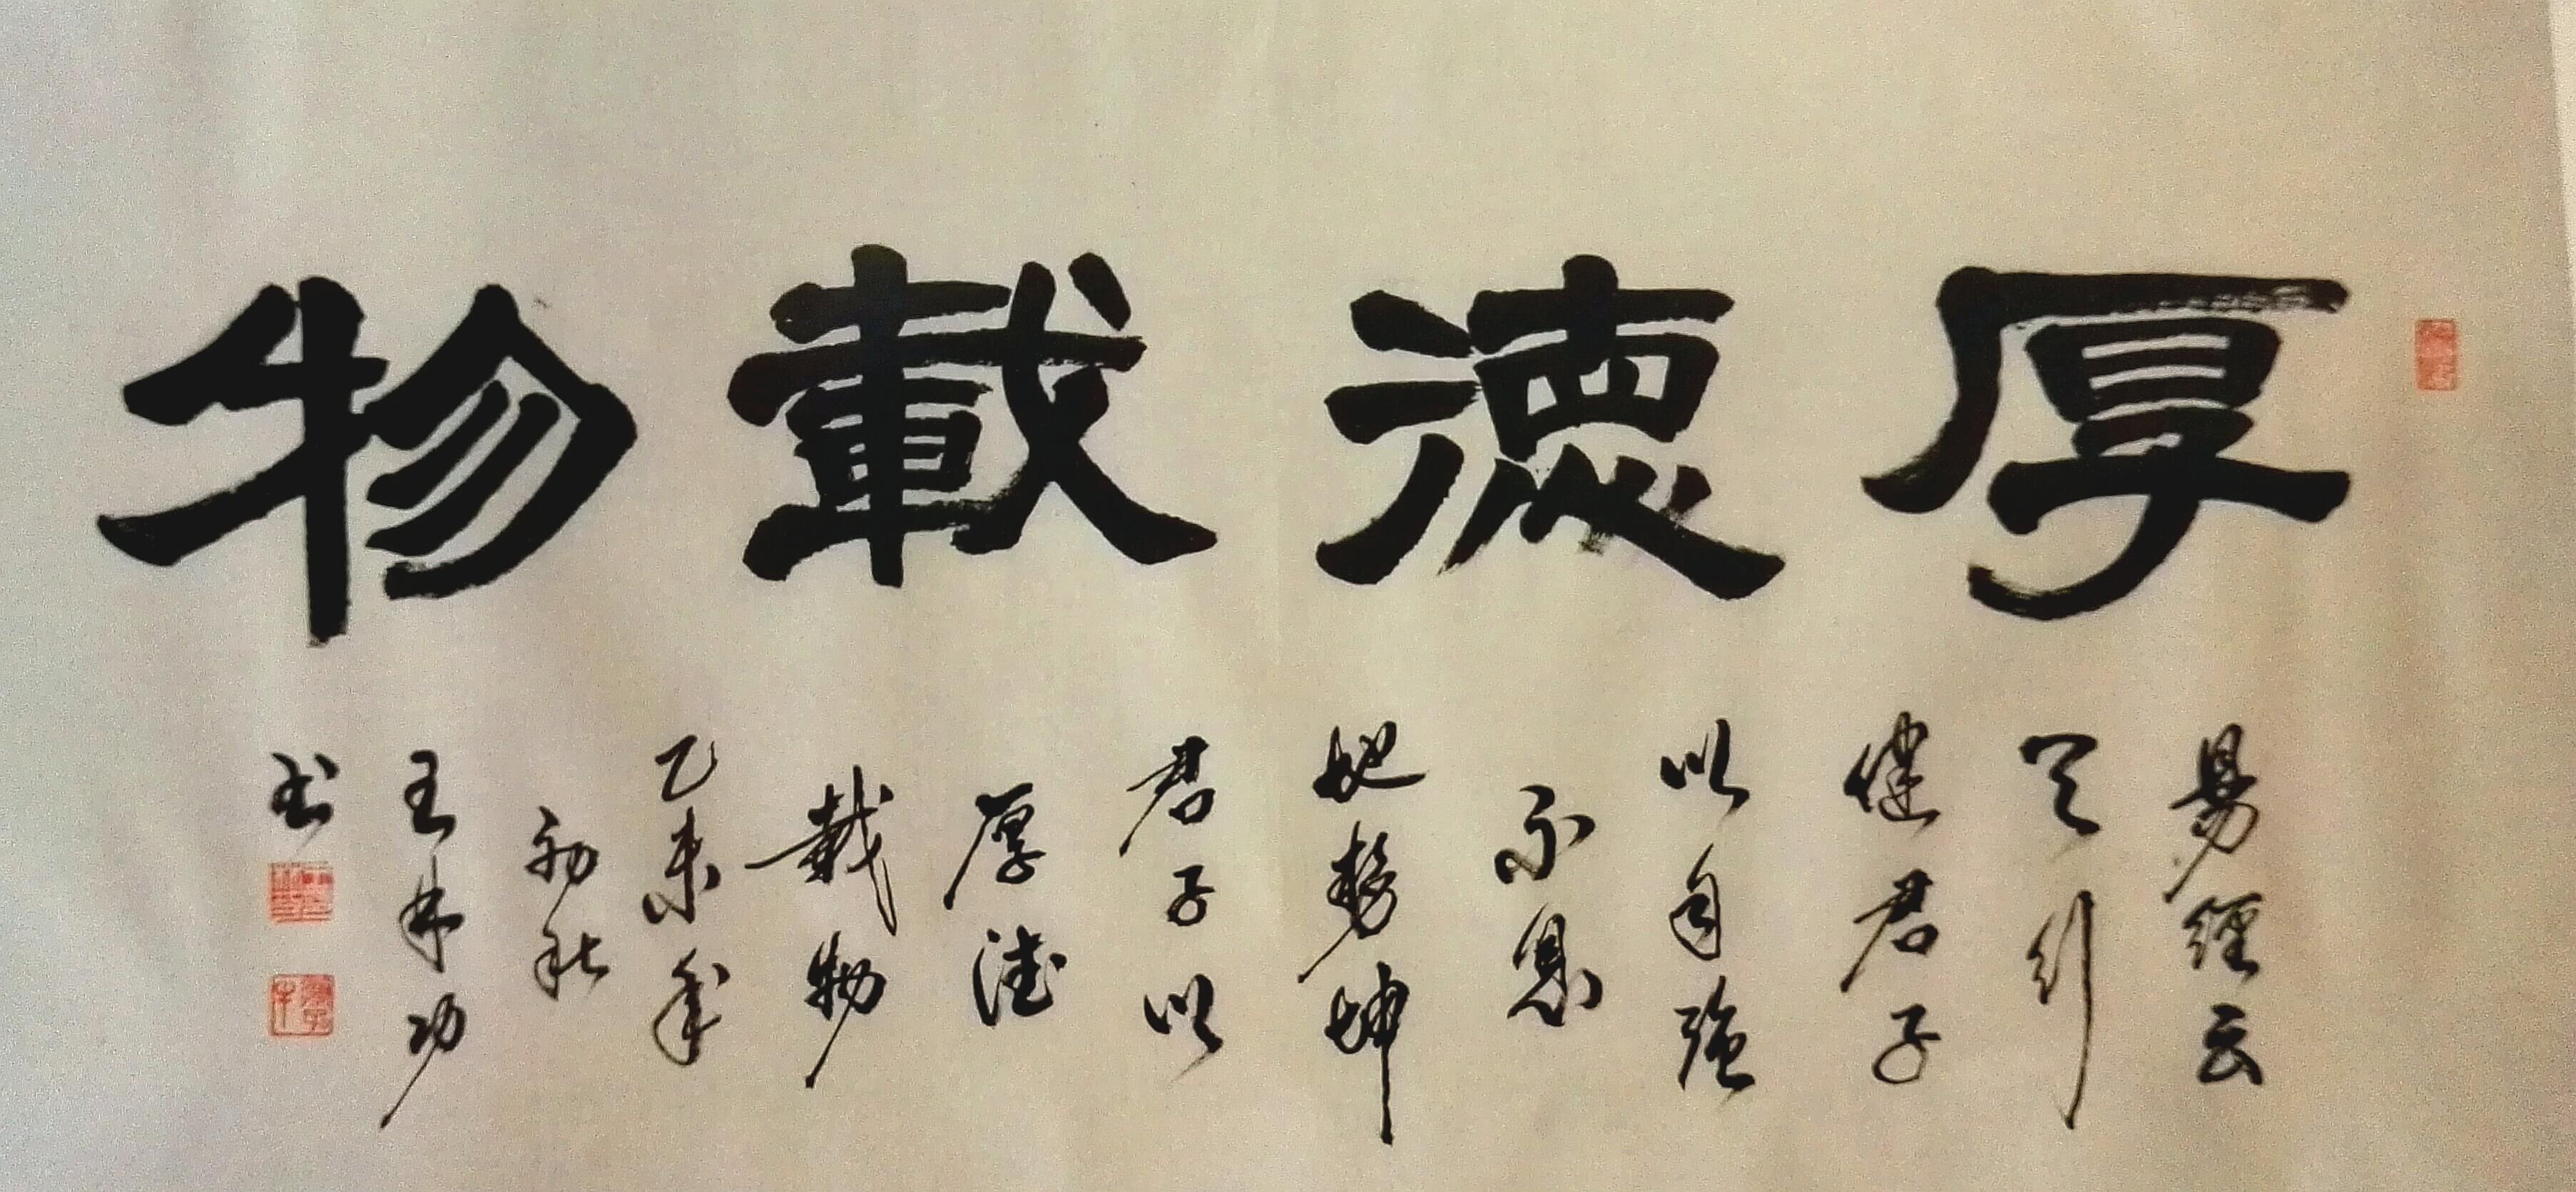 厚德載物
易經云
天行
健君子
以自強
不息
地勢坤
君子以
厚德
載物
乙未年
初秋
王朱功
书